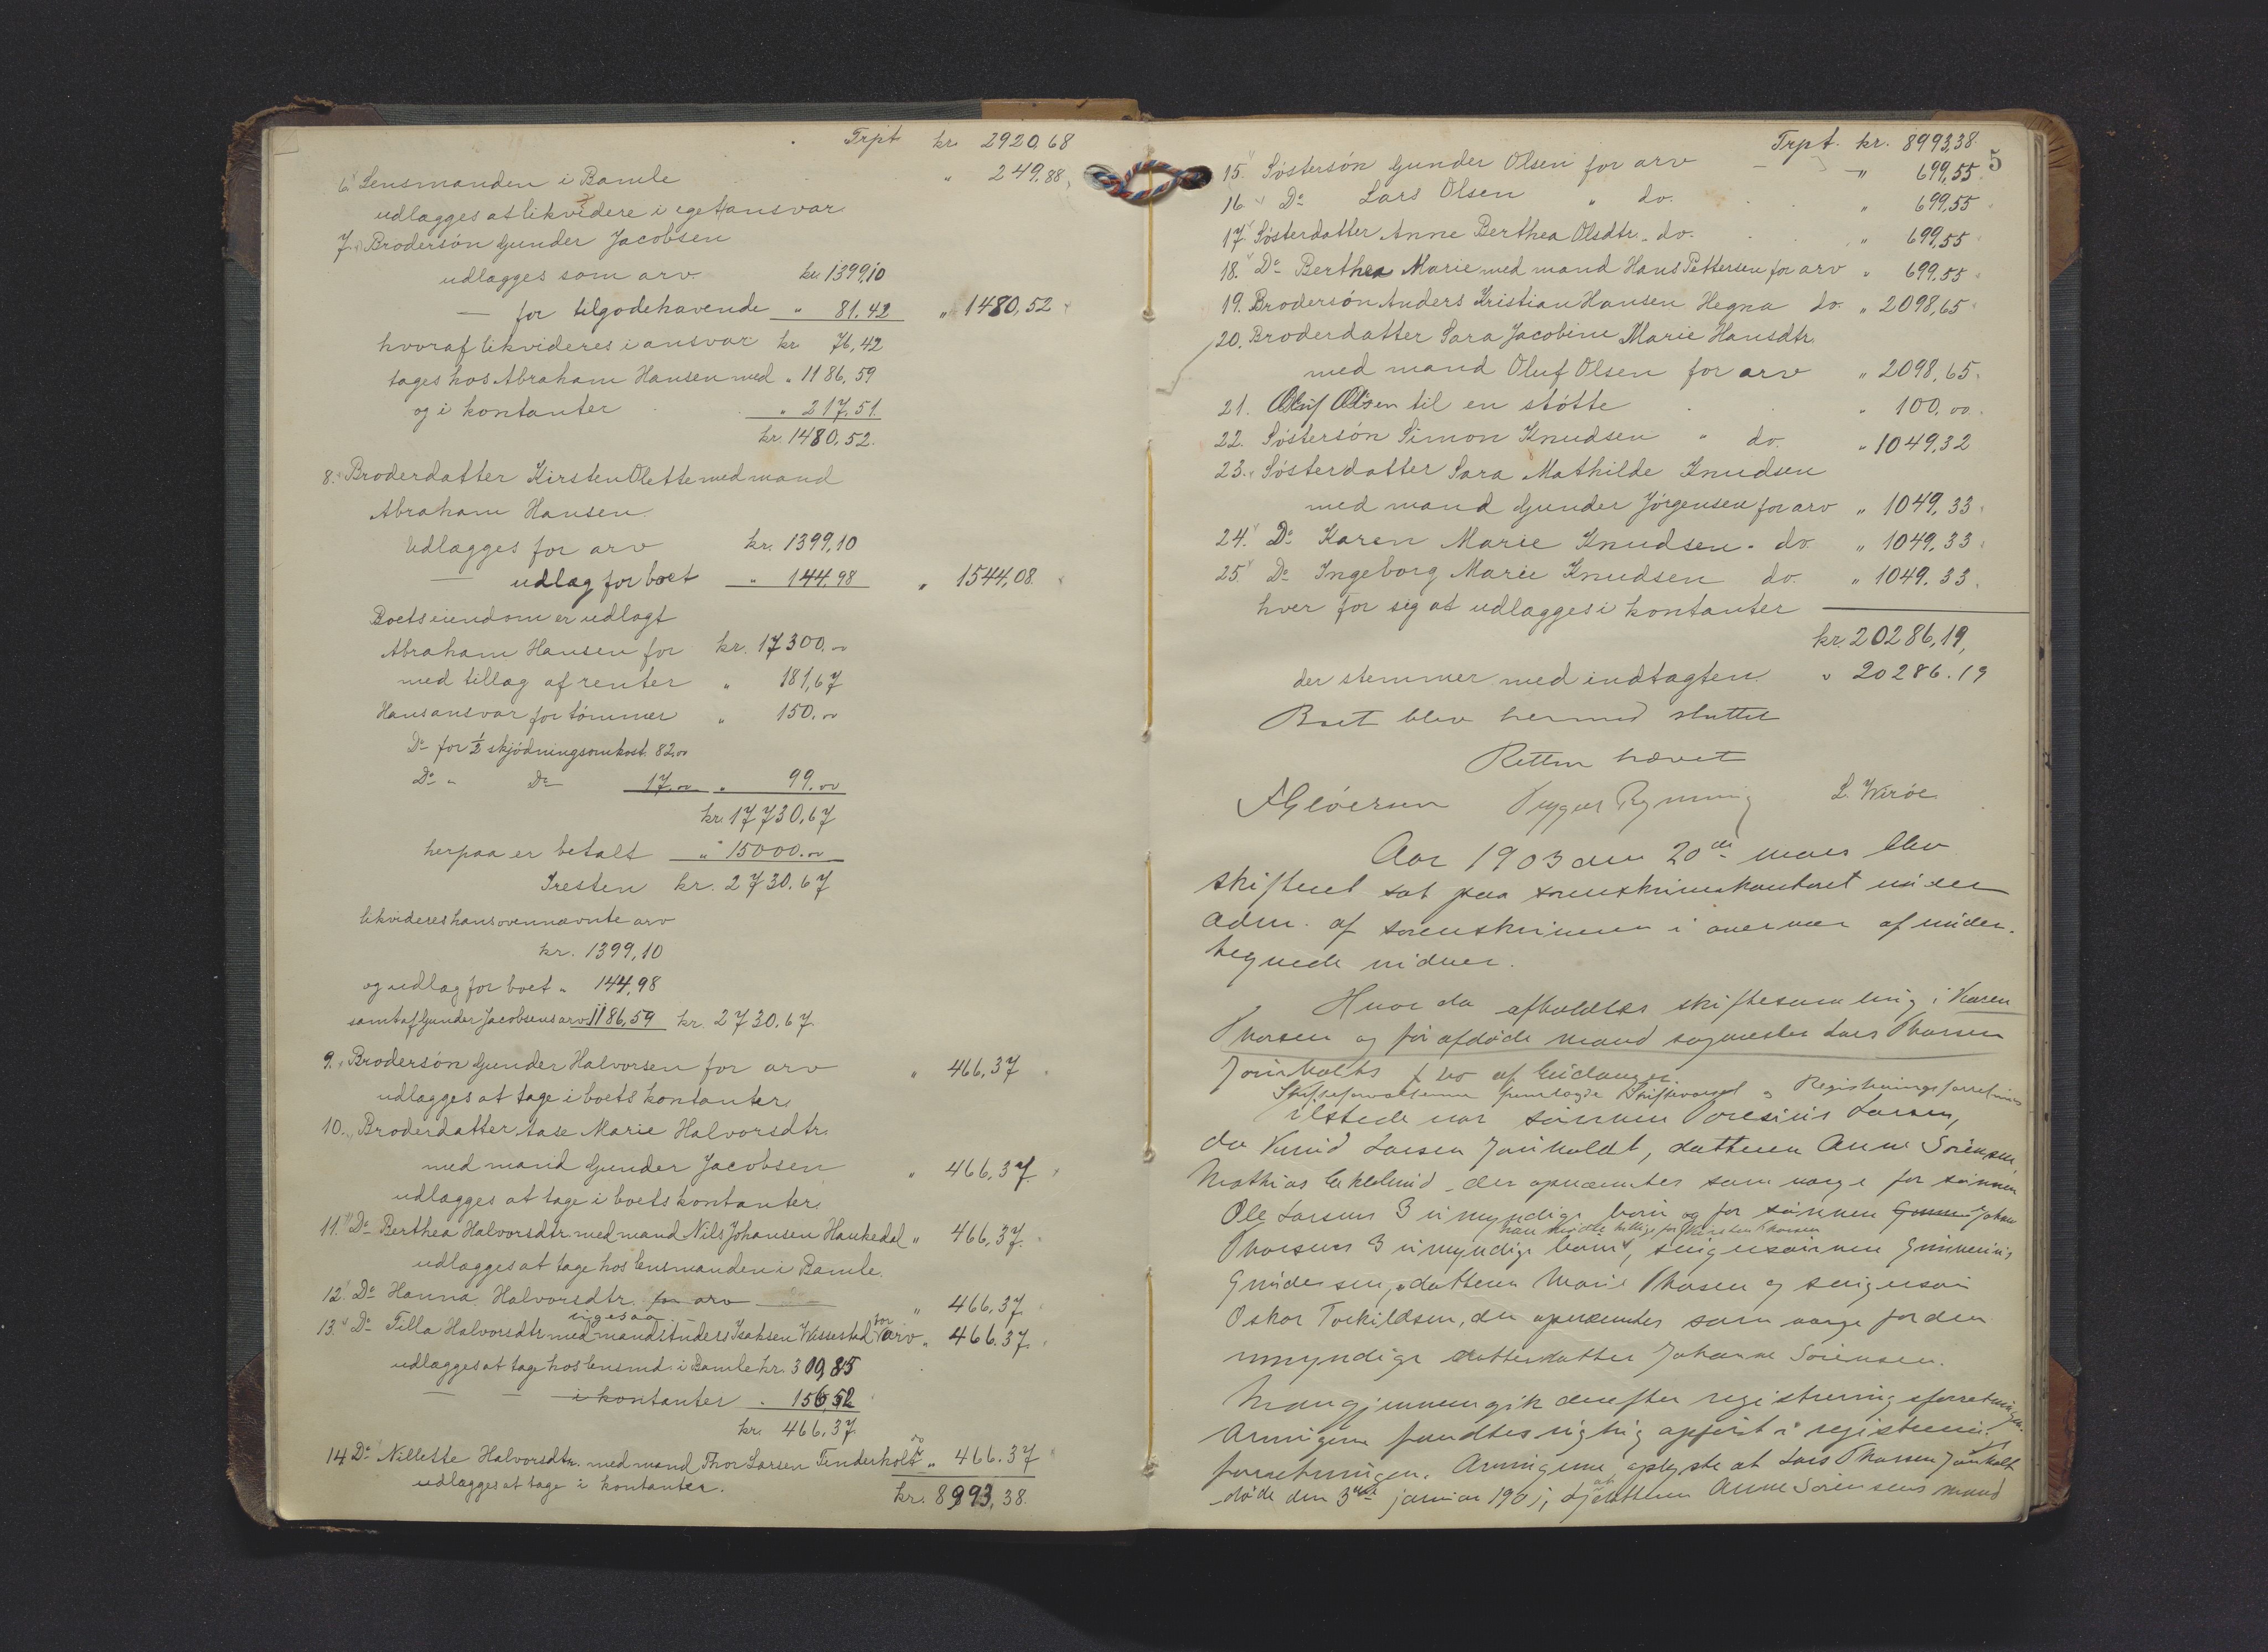 Trpt kr. 2920,68
6. Lensmanden i Bamle " 249,88
udlægges at likvidere i eget ansvar
7. Brodersön Gunder Jacobsen
udlægges som arv kr. 1399,10
— for tilgodehavende " 81.42 " 1480,52
hvoraf likvideres i ansvar kr 76,42
tages hos Abraham Hansen med " 1186,59
og i kontanter " 217.51
kr. 1480,52.
8. Broderdatter Kirsten Olette med mand
Abraham Hansen
Udlægges for arv kr. 1399,10
— udlæg for boet " 144.98 " 1544,08
Boets eiendom er udlagt
Abraham Hansen for kr. 17300.00
med tillæg af renter " 181,67
Hans ansvar for tömmer " 150.00
Do for 1/2 skjödningsomkost. 82.00
Do " Do 17.00 " 99.00
kr. 17730,67
herpaa er betalt " 15000.00
Iresten kr. 2730.67
likvideres hans ovennævnte arv
kr. 1399,10
og udlæg for boet " 144,98
samt af Gunder Jacobsens arv 1186,59 kr. 2730.67.
9. Brodersön Gunder Halvorsen for arv " 466,37
udlægges at tage i boets kontanter
10. Broderdatter Aase Marie Halvorsdtr.
med mand Gunder Jacobsen " 466,37
udlægges at tage i boets kontanter.
11. Do Berthea Halvorsdtr. med mand Nils Johansen Haukedal " 466,37.
udlægges at tage hos lensmanden i Bamle.
12. Do Hanna Halvorsdtr. for arv — " 466,37.
ligesaa
13. Do Tilla Halvorsdtr. med mand Anders Isaksen Wissestad for arv " 466.37.
udlægges at tage hos lensmd. i Bamle kr. 309,85
— — i kontanter " 156,52
kr. 466,37
14 Do Nillette Halvorsdtr. med mand Thor Larsen Tinderholt do " 466.37
udlægges at tage i kontanter.
kr. 8993,38.
Trpt. kr. 8993,38.
5
15. Söstersön Gunder Olsen for arv — " 699,55
16. Do Lars Olsen " do. " 699,55
17. Sösterdatter Anne Berthea Olsdtr. do. " 699,55
18. Do Berthea Marie med mand Hans Pettersen for arv " 699,55
19. Brodersön Anders Kristian Hansen Hegna do. " 2098,65
20. Broderdatter Sara Jacobine Marie Hansdtr.
med mand Oluf Olsen for arv " 2098,65
21. Oluf Olsen til en stötte " 100,00
22. Söstersön Simon Knudsen " do. " 1049,32
23. Sösterdatter Sara Mathilde Knudsen
med mand Gunder Jörgensen for arv " 1049,33
24. Do Karen Marie Knudsen - do. " 1049,33
25. Do Ingeborg Marie Knudsen do. " 1049.33.
hver for sig at udlægges i kontanter
kr. 20286,19,
der stemmer med indtægten. " 20286.19
Boet blev hermed sluttet
Retten hævet
Rynning L. Wiröe
Aar 1903 den 20de mars blev
skifteret sat paa sorenskriverkontoret under
adm. af sorenskriveren i overvær af under-
tegnede vidner.
Hvor da afholdtes skiftesamling i Karen
Thorsen og för afdöde mand Lars Thorsen
Jönholts bo af Eidanger.
Skifteforvalteren fremlagde og Registreringsforretning
Tilstede var sönnen Larsen,
do Knud Larsen Jönholdt, datteren Anne Sörensen,
Mathias Eklund der opnævntes som værge for sönnen
Ole Larsens 3 umyndige börn og for sönnen Johan
han mödte tillige for Kirsten Thorsen
Thorsens 3 umyndige börn, svigersönnen
Gundersen, datteren Marie Thorsen og svigersön
Oskar Torkildsen, der opnævntes som værge for den
umyndige datterdatter Johanne Sörensen.
Man gjennemgik derefter registreringsforretningen.
Arvingerne fandtes rigtig opfört i registrerings-
forretningen. Arvingerne oplyste at Lars Thorsen Jönholt
döde den 3die januar 1901, at datteren Anne Sörensens mand